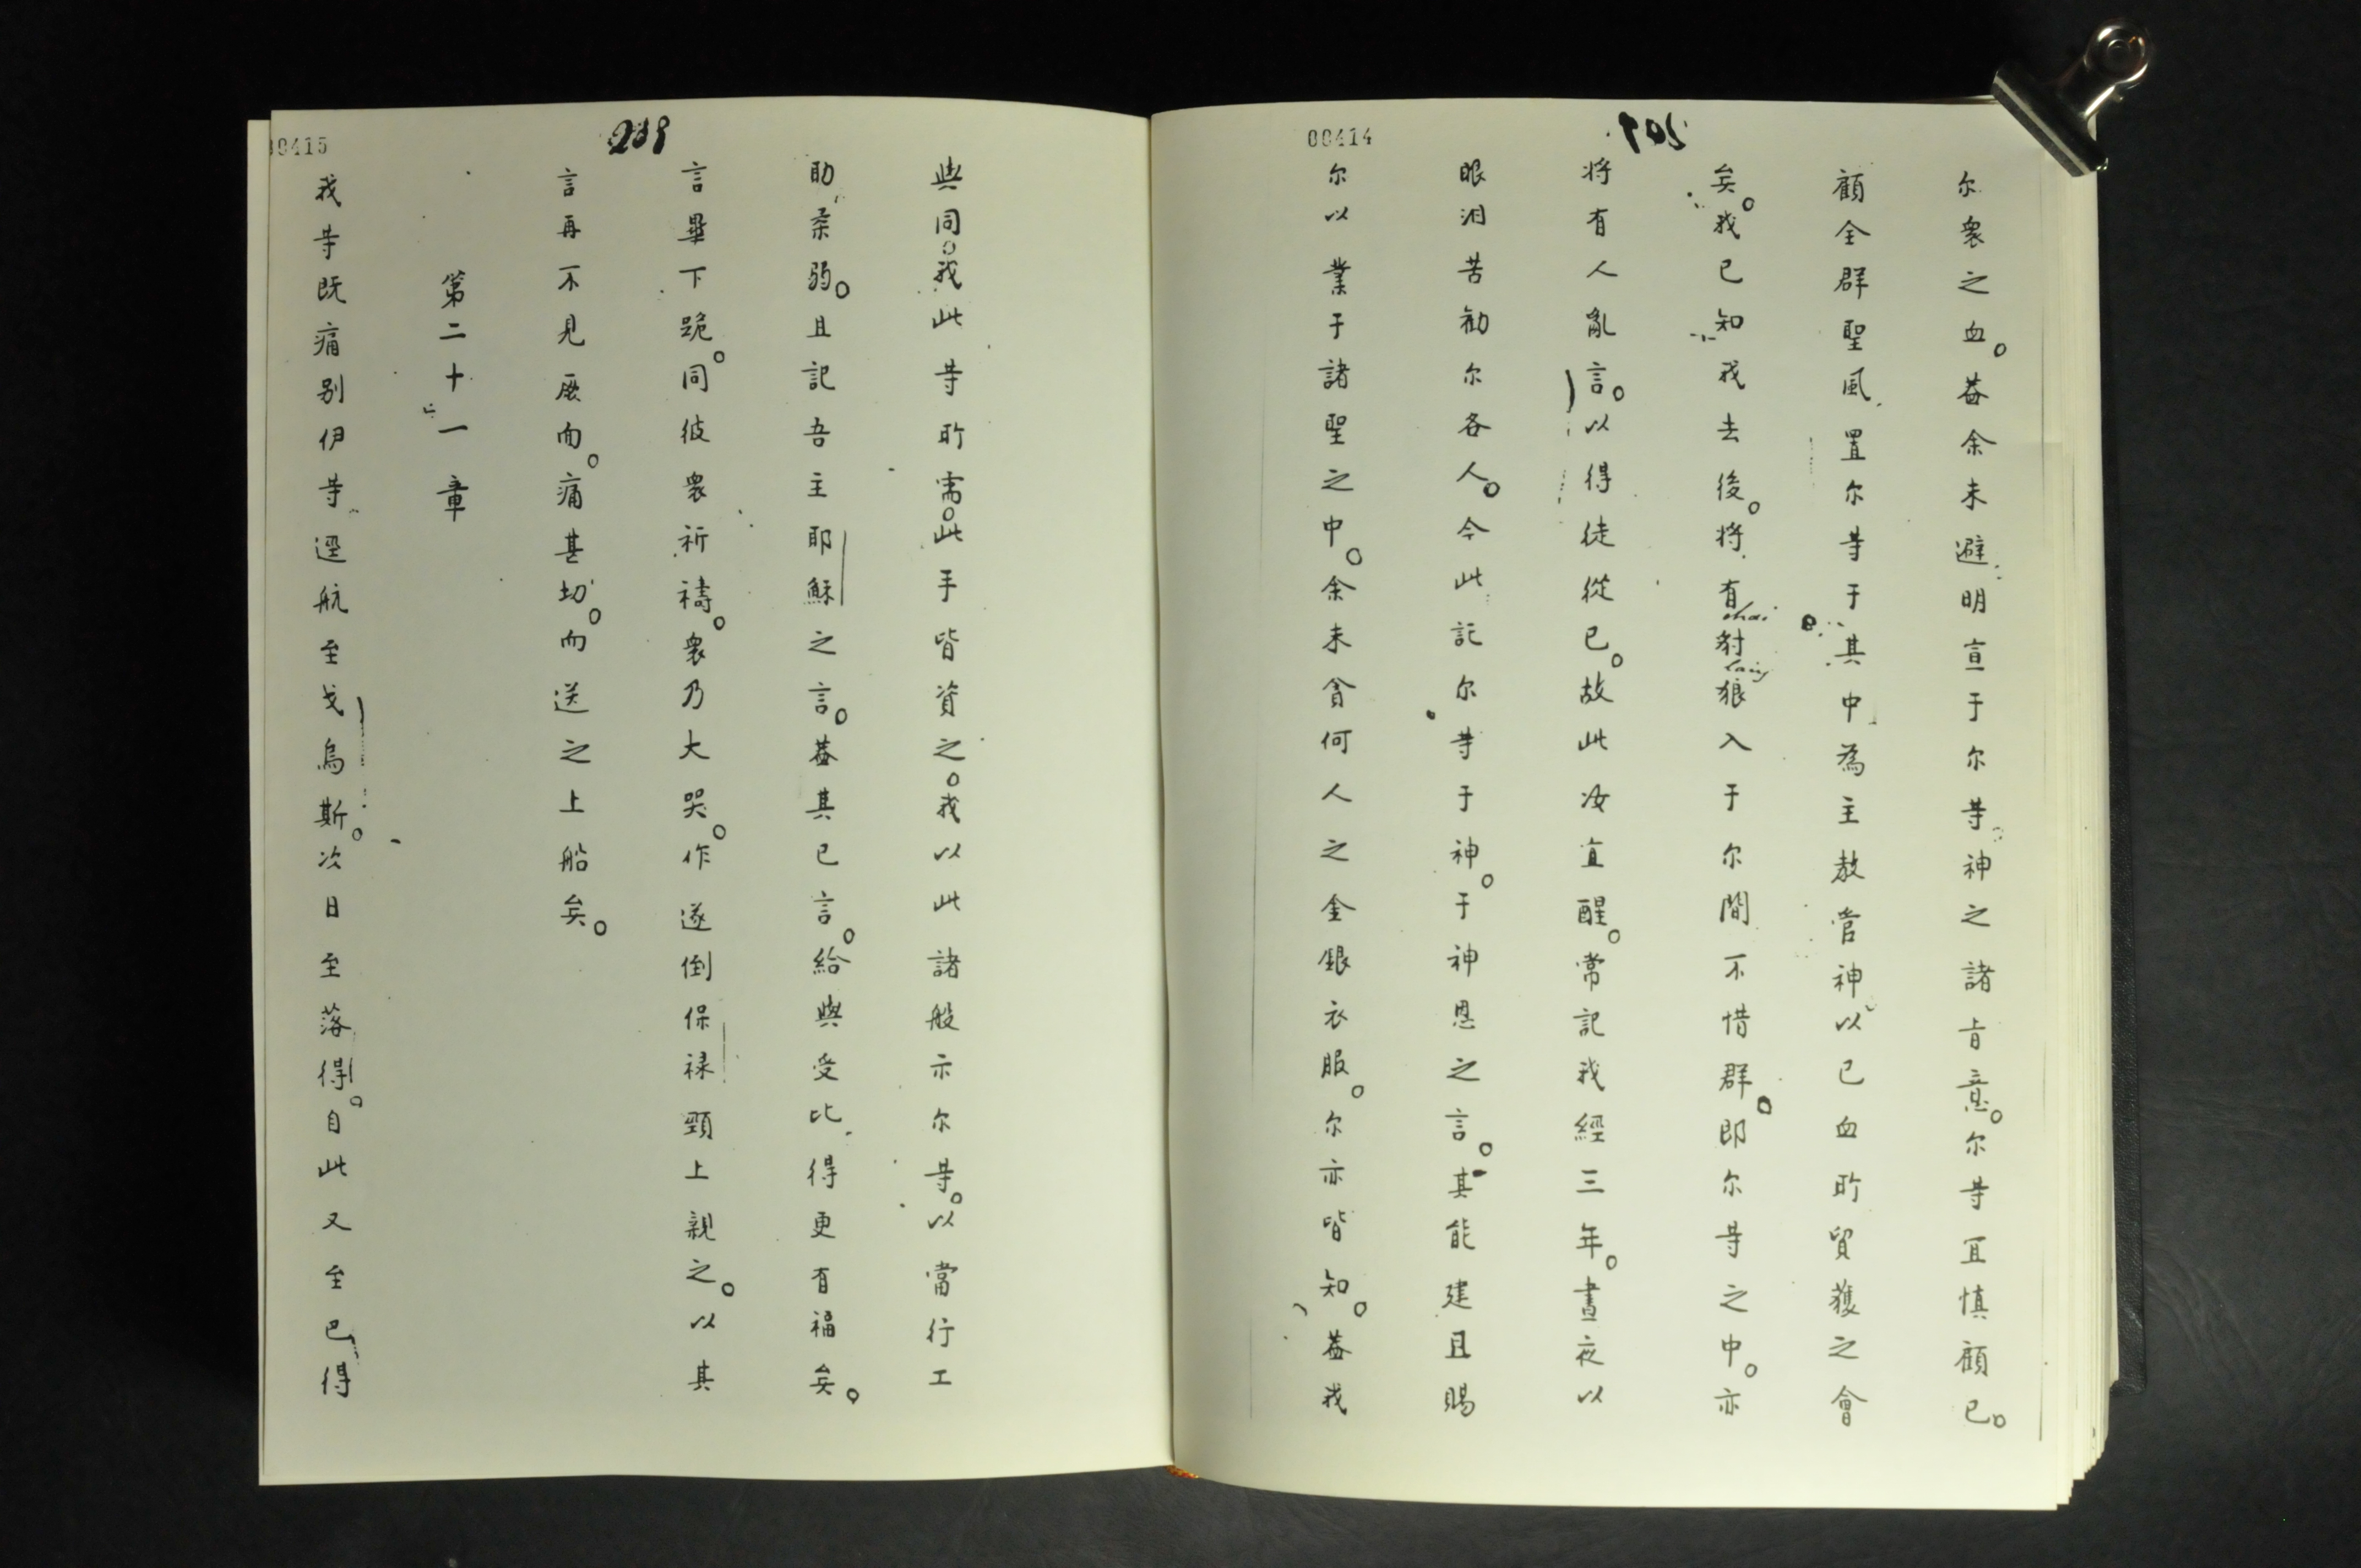 00414
尔衆之血。葢余未避明亶于尔䓁。神之諸㫖意。尔䓁冝慎顧已。
顧全群聖風置尔䓁于其中為主教管神以已血所貿獲之會
矣。我已知我去後。將有豺狼入于尔間不惜群。即尔䓁之中。亦
將有人亂言。以得徒從已。故此汝宜醒。常記我經三年。晝夜以
眼泪苦勸尔各人。今此託尔䓁于神。于神恩之言。其能建且賜
尔以業于諸聖之中。余未貪何人之金銀衣服。尔亦皆知。葢我
00415
239
與同。我此䓁所需。此手皆資之。我以此諸般示尔䓁。以當行工
助柔弱。且記吾主耶穌之言。葢其已言。給與受比得更有福矣。
言畢下跪。同彼衆祈禱。衆乃大哭。作遂倒保禄頸上親之。以其
言再不見厥面。痛甚切。而送之上船矣。
第二十一章
我䓁既痛别伊䓁逕航至戈烏斯。次日至落得。自此又至巴得